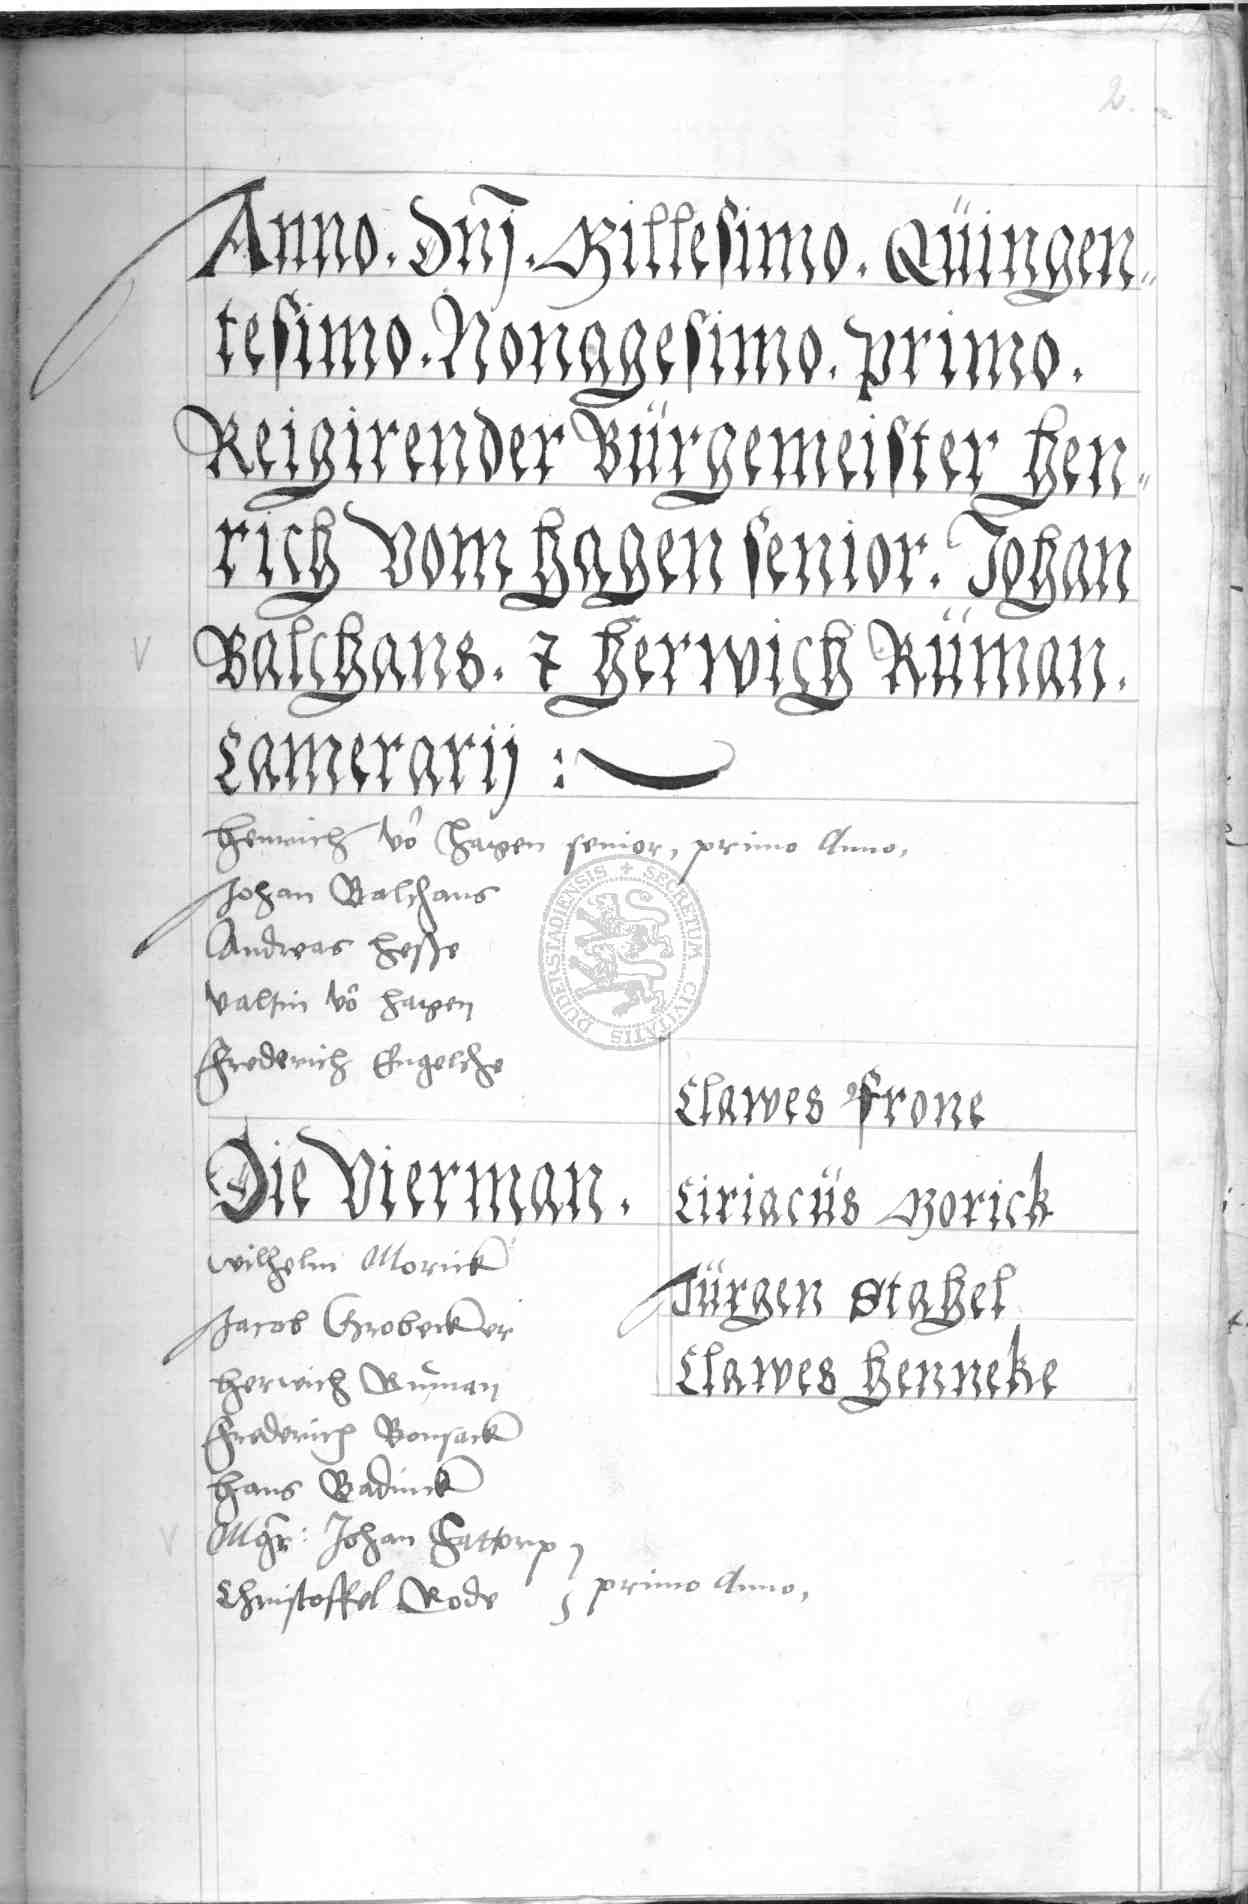 2.
Anno. Dnj. Millesimo. Qüingen„
tesimo. Nonagesimo. primo.
Reigirender Bürgemeister Hen„
rich Vom Hagen senior. Johan
Balchans. & Herwich Rüman.
Camerarij :
Henrich vô Hagen senior, primo Anno,
Johan Balchans
Andreas Hesse
Valtin vô Hagen
Frederich Engelche
Die Vierman.
Wilhelm Morick
Jacob Grobecker
Herwich Ruman
Frederich Bonsack
Hans Badunck
Mgr: Johan Hattorp
Christoffel Rode
primo Anno,
Clawes Frone
Ciriacüs Morick
Jürgen Stahel
Clawes Henneke
SECRETUM CIVITATIS DUDERSTADIENSIS